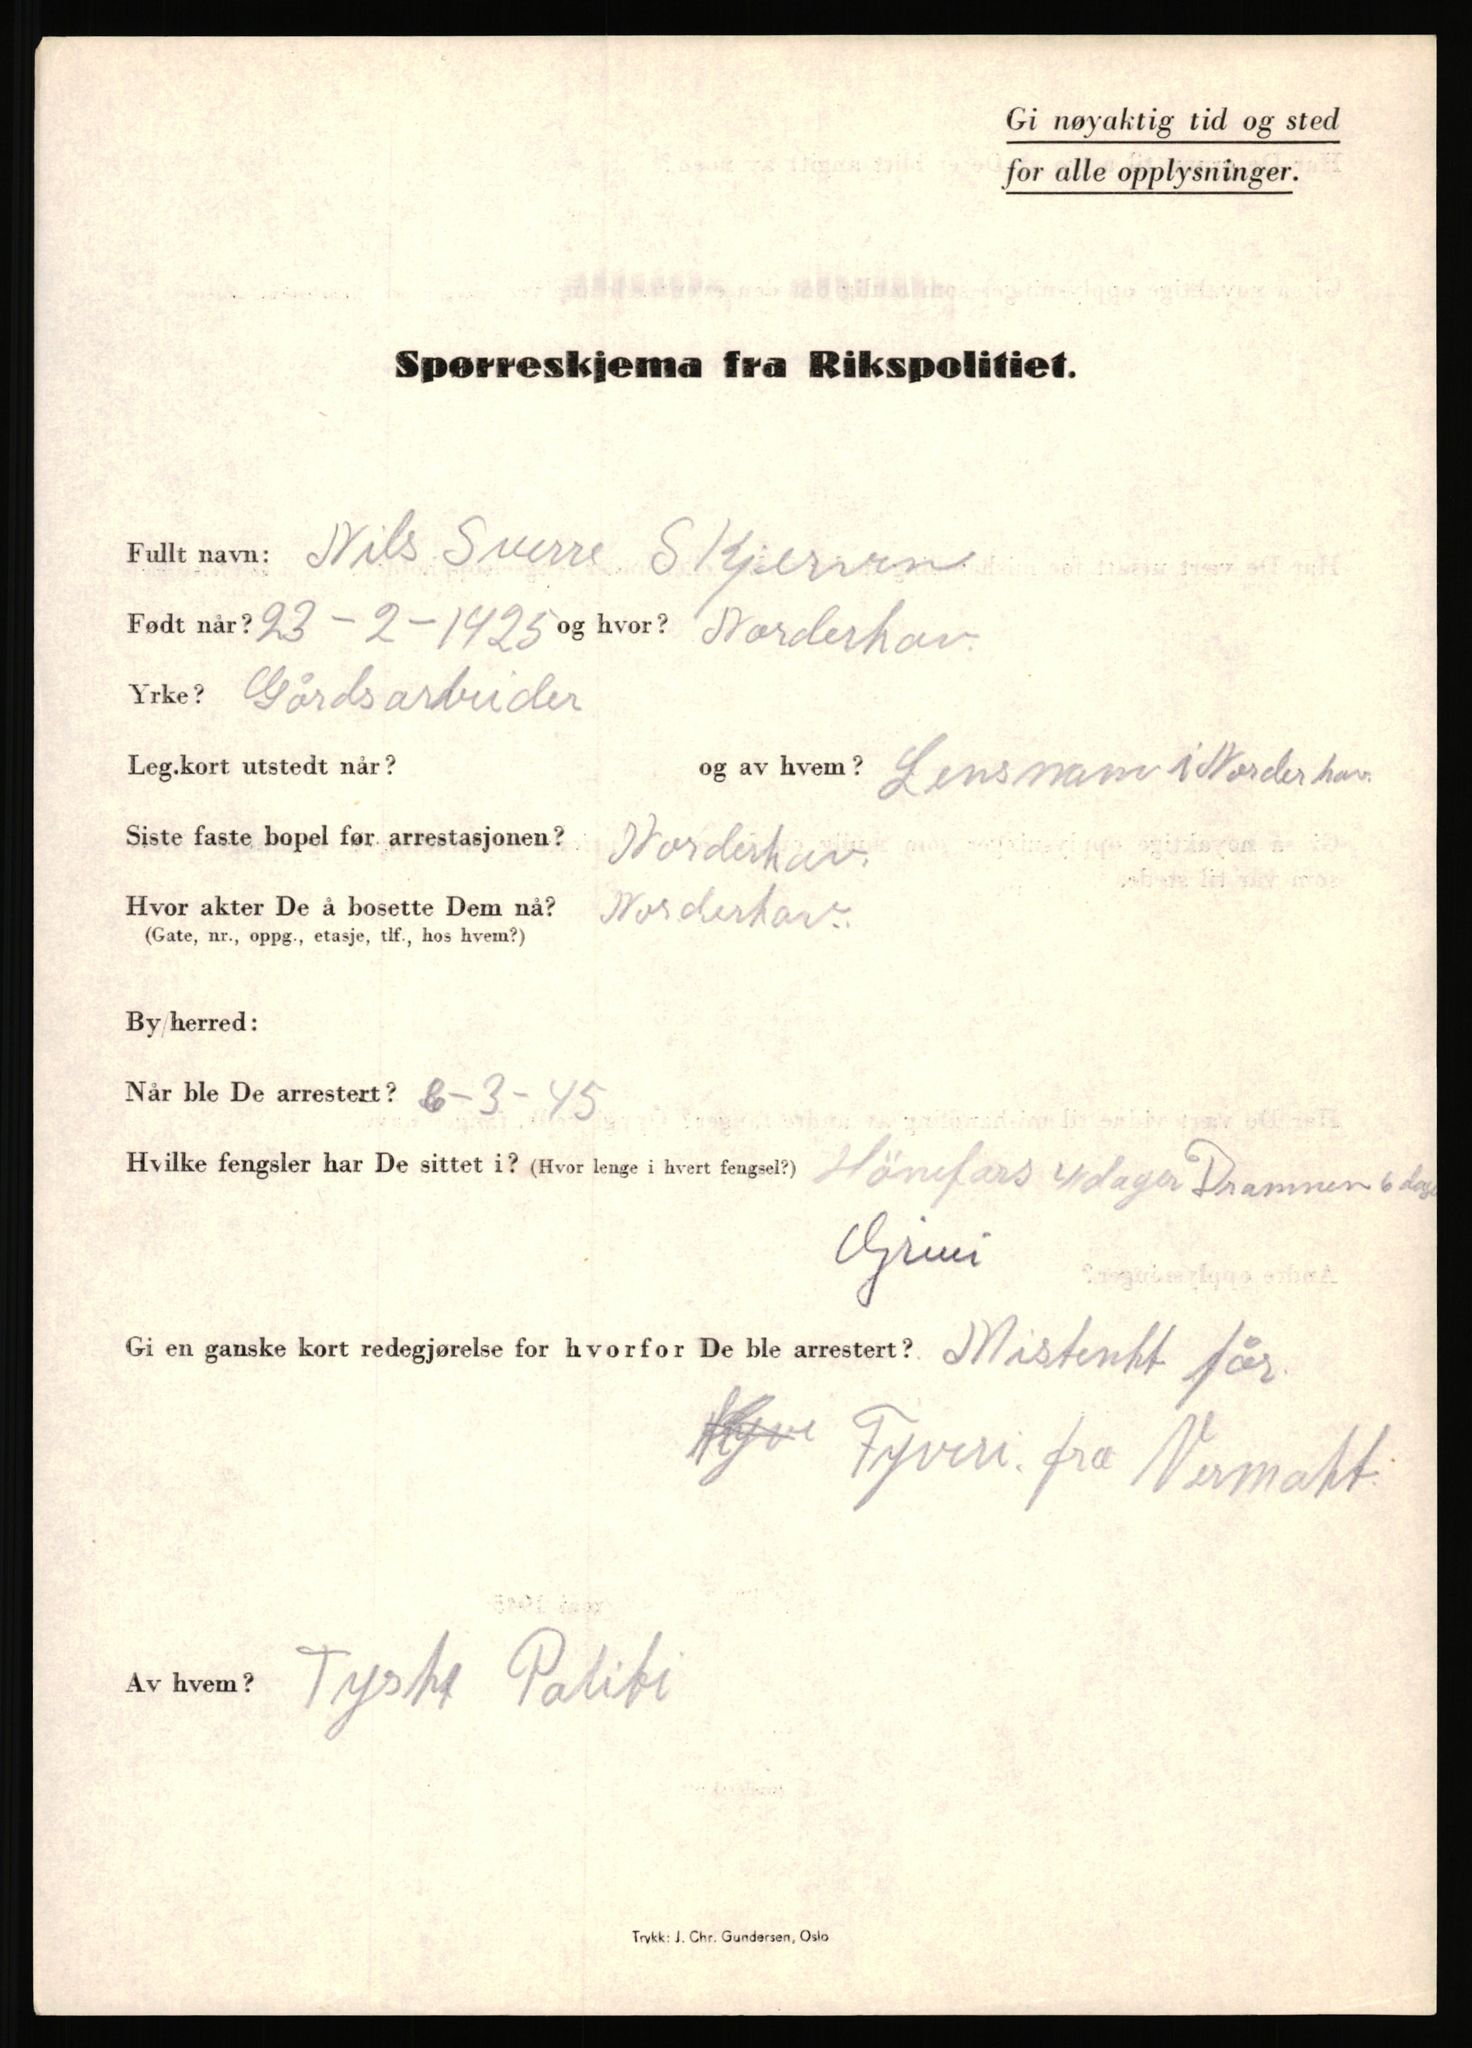 Gi nøyaktig tid og sted
for alle opplysninger.
Spørreskjema fra Rikspolitiet.
Fullt navn: Nils Sverre Skjerven
Født når? 23-2-1925 og hvor? Norderhov.
Yrke? Gårdsarbeider
Leg.kort utstedt når? og av hvem? Lensmann i Norderhov.
Siste faste bopel før arrestasjonen? Norderhov.
Hvor akter De å bosette Dem nå? Norderhov.
(Gate, nr., oppg., etasje, tlf., hos hvem?)
By/herred:
Når ble De arrestert? 6-3-45
Hvilke fengsler har De sittet i? (Hvor lenge i hvert fengsel?) Hönefoss 4 dager Drammen 6 dage
Grini
Gi en ganske kort redegjørelse for hvorfor De ble arrestert? Mistenkt får.
Tyveri. fra Vermakt.
Av hvem? Tysk Politi
Trykk: J. Chr. Gundersen, Oslo